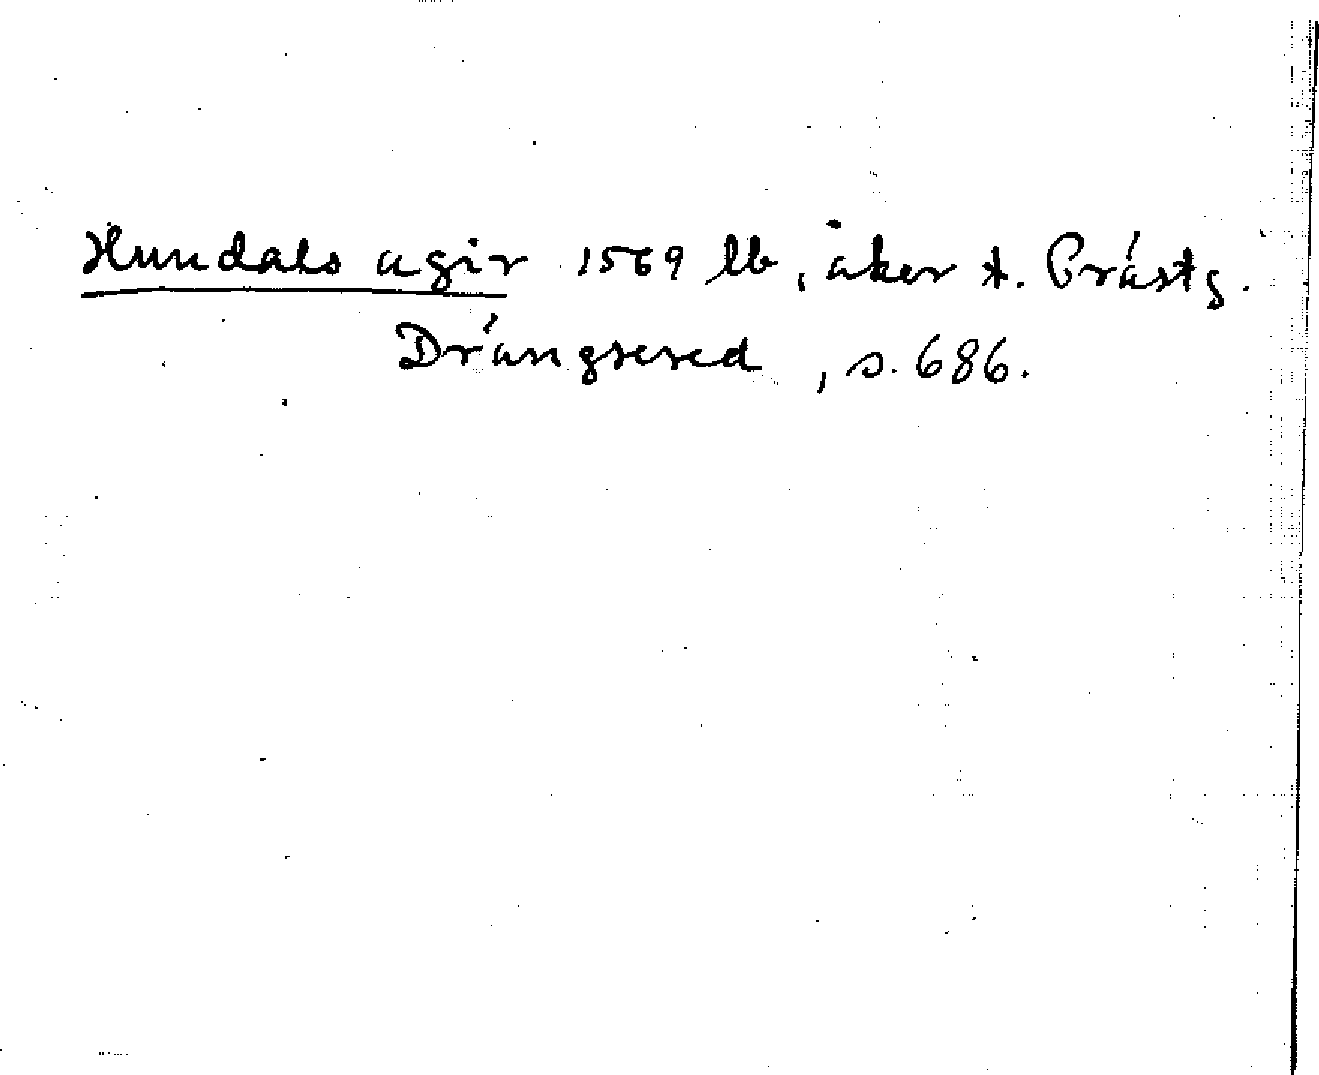 Hundals agir 1569 lb, åker t. Prästg.
Drängsered, s. 686.